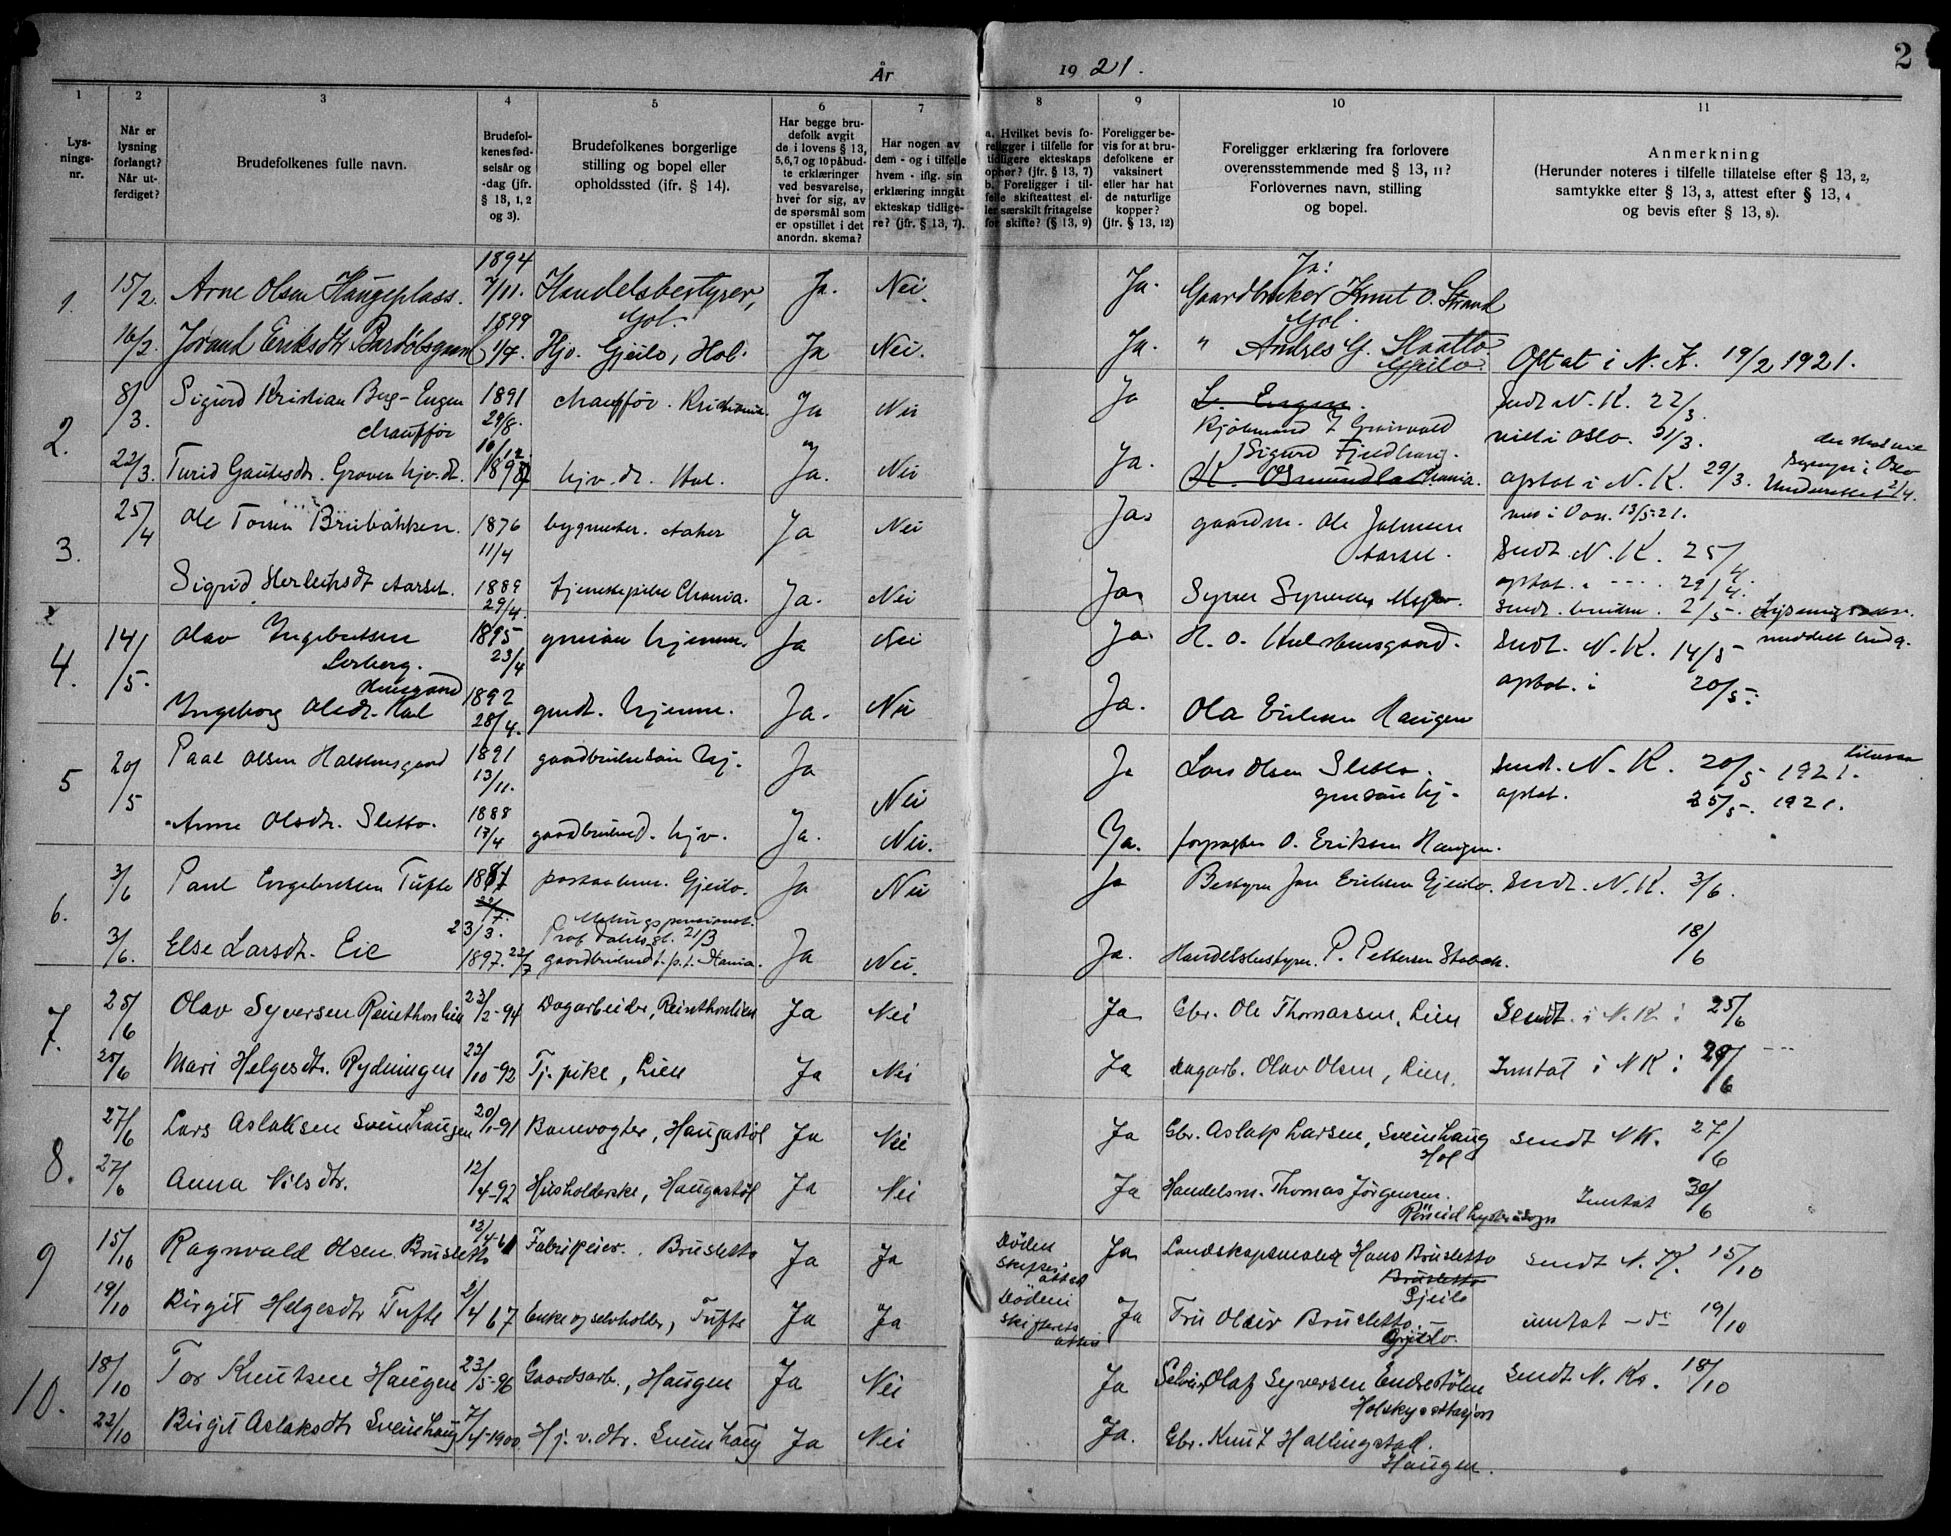 År 1921.
2
1 2 3 4 5 6 7 8 9 10 11
Lys-
nings-
nr.
Når er
lysning
forlangt?
Når ut-
ferdiget?
Brudefolkenes fulle navn.
Brudefol-
kenes fød-
selsår og
-dag (jfr.
§ 13, 1, 2
og 3).
Brudefolkenes borgerlige
stilling og bopel eller
opholdssted (ifr. § 14).
Har begge bru-
defolk avgit
de i lovens § 13,
5,6,7 og 10 påbud-
te erklæringer
ved besvarelse,
hver for sig, av
de spørsmål som
er opstillet i det
anordn. skema?
Har nogen av
dem - og i tilfelle
hvem - iflg. sin
erklæring inngåt
ekteskap tidlige-
re? (jfr. § 13, 7).
a. Hvilket bevis fo-
religger i tilfelle for
tidligere ekteskaps
ophør? (jfr. § 13, 7)
b. Foreligger i til-
felle skifteattest el-
ler særskilt fritagelse
for skifte? (§ 13, 9)
Foreligger be-
vis for at bru-
defolkene er
vaksinert
eller har hat
de naturlige
kopper?
(jfr. § 13, 12)
Foreligger erklæring fra forlovere
overensstemmende med § 13, 11?
Forlovernes navn, stilling
og bopel.
Anmerkning
(Herunder noteres i tilfelle tillatelse efter § 13, 2,
samtykke efter § 13, 3, attest efter § 13, 4
og bevis efter § 13, 8).
1. 15/2. Arne Olsen Haugeplass. 1894 7/11. Handelsbestyrer, Gol. Ja. Nei. Ja. Ja: Gaardbruker Knut O. Strand Gol.
16/2. Jorand Eriksdtr Bardølsgaard 1899 1/4. Hjv. Gjeilo, Hol. Ja Nei. Ja. " Andres G. Slaatto. Gjeilo. Optat i N. K. 19/2 1921.
2. 8/3. Sigurd Kristian Berg-Engen chauffør 1891 29/8. chauffør. Kristiania. Ja Nei Ja L. Engen. Sendt N. K. 22/3.
viet i Oslo. 31/3.
22/3. Turid Gautesdt. Groven hjv. dt. 10/12 1898 hjv. dt. Hol. Ja. Nei Ja. Sigurd optat i N. K. 29/3.
3. 25/4 Ole Brubakken. 1876 11/4 bygmester. Aaker Ja Nei Ja. gaardm. Ole Johnsen Aarset. 13/5-21.
Sendt. N. K. 25/4
Sigrid Herleiksdt Aarset. 1889 29/4. tjenestepike Chania. Ja. Nei Ja. Syver optat. 29/4.
sendt. 2/5.
4. 14/5. Olav Ingebretsen 1895 23/4 hjemme. Ja Nei Ja. H. O. sendt. N. K. 14/5
Ingeborg Olsdt. Hol 1892 28/4. hjemme. Ja. Nei Ja. Ola Eriksen Haugen optat. i 20/5.
5 20/5 Paal Olsen Halstensgaard 1891 13/11. Ja Nei Ja Lars Olsen Sletto. sendt. N. K. 20/5 1921.
Anne Olsdtr. Sletto. 1888 17/4 hjv. Ja. Nei. Ja. forpagter O. Eriksen Haugen. optat. 25/5. 1921.
6. 3/6 Paul Engebretsen Tufte 22/7. Gjeilo. Ja Nei Ja Bestyrer Jon Eriksen Gjeilo. Sendt. N. K. 3/6.
3/6. Else Larsdtr. Eie 23/3. 1897. 22/7 Ja Nei. Ja. Handelsbestyrer. P. Pettersen 18/6
7. 25/6 Olav Syversen Reinthonlien 23/2-94 Dagarbeider, Reinthonlien Ja Nei Ja Gbr. Ole Thomassen, Lien Sendt i N. K : 25/6
25/6 Mari Helgesdtr. Rydningen 22/10-92 Tj. pike, Lien Ja Nei Ja Dagarb. Olav Olsen, Lien. Inntat i N K : 29/6
8. 27/6 Lars Aslaksen Sveinhaugen 20/1-91 Banevogter, Haugastøl Ja Nei Ja Gbr. Aslak Larsen, Sveinhaug Hol sendt N K. 27/6
27/6 Anna Nilsdtr. 12/4-92 Husholderske, Haugastøl Ja Nei Ja Handelsm. Thomas Jørgensen. Inntat 30/6
9 15/10 Ragnvald Olsen Brusletto 12/4-61 Fabrikeier. Brusletto Ja Ja Døden skifteattest Ja Landskapsmaler Hans Brusletto Brusletto Gjeilo sendt N. K. 15/10
19/10 Birgit Helgesdtr Tufte 2/4 67 Enke og selvholder, Tufte Ja Ja Døden skifterets attest Ja Fru Brusletto Gjeilo. inntat - do 19/10
10. 18/10 Tor Knutsen Haugen 23/5-96 Gaardsarb., Haugen Ja Nei Ja Selveier Olaf Syversen Endrestølen sendt N. Kr. 18/10
22/10 Birgit Aslaksdtr Sveinhaug 7/4-1900 Hj. v. dtr. Sveinhaug Ja Nei Ja. Gbr. Knut Hallingstad. Haugen.